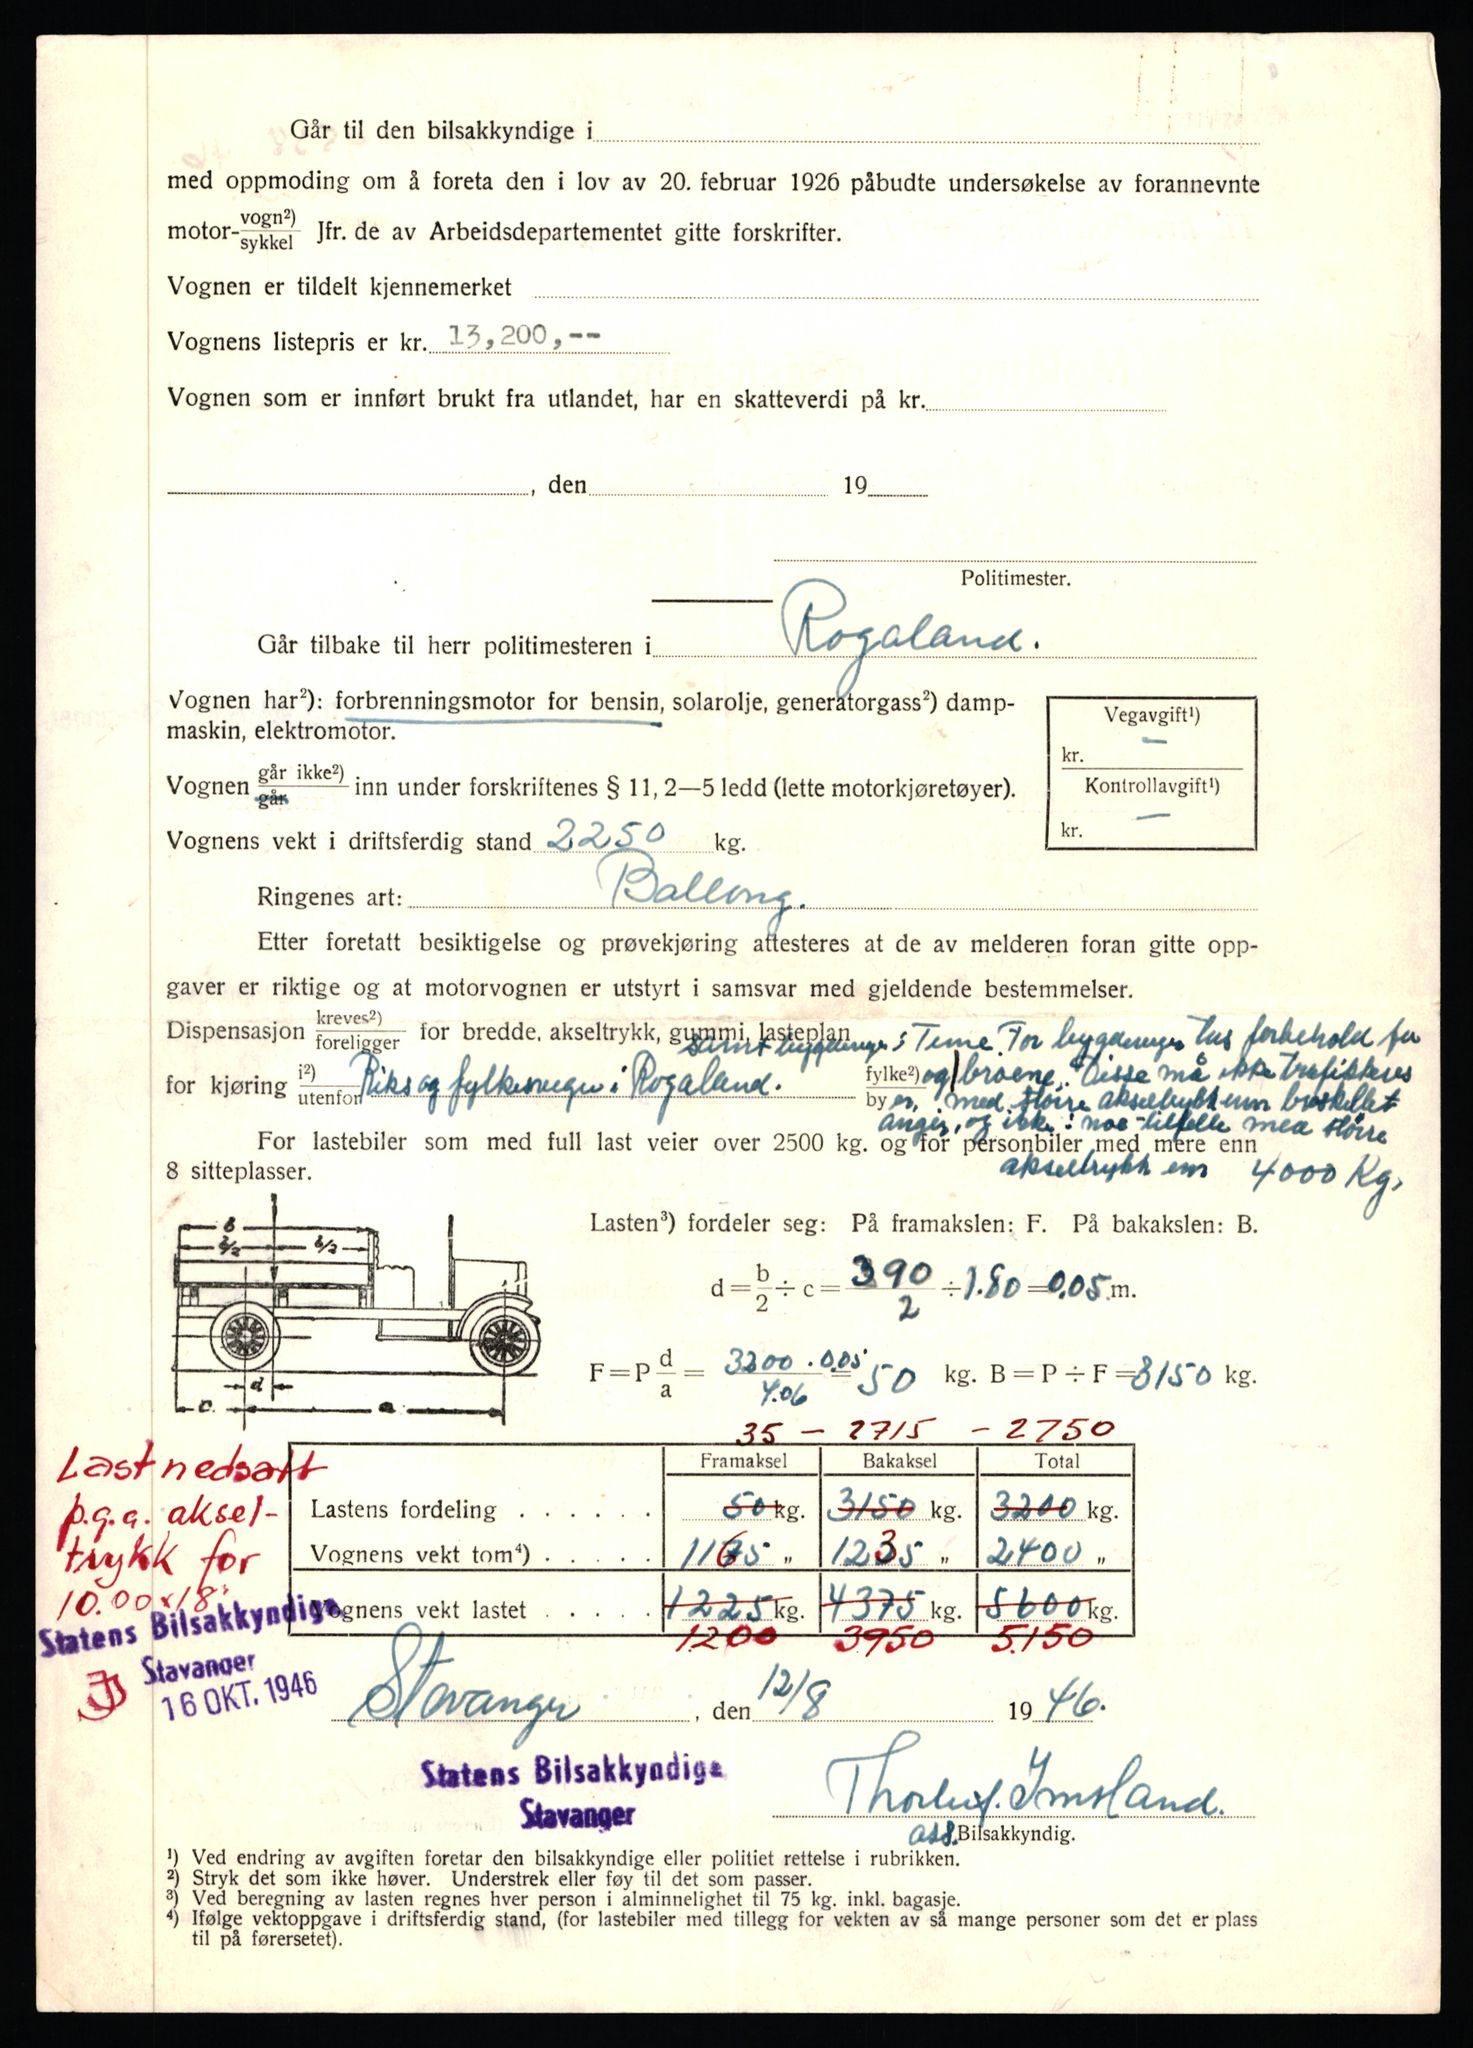 Går til den bilsakkyndige i
med oppmoding om å foreta den i lov av 20. februar 1926 påbudte undersøkelse av forannevnte
motor-vogn²)/sykkel Jfr. de av Arbeidsdepartementet gitte forskrifter.
Vognen er tildelt kjennemerket
Vognens listepris er kr. 13,200,--
Vognen som er innført brukt fra utlandet, har en skatteverdi på kr.
, den 19
Politimester.
Går tilbake til herr politimesteren i Rogaland.
Vognen har²): forbrenningsmotor for bensin, solarolje, generatorgass²) damp-
maskin, elektromotor.
Vegavgift¹)
kr. —
Kontrollavgift¹)
kr. —
Vognen går ikke²)/går inn under forskriftenes § 11, 2—5 ledd (lette motorkjøretøyer).
Vognens vekt i driftsferdig stand 2250 kg.
Ringenes art: Ballong.
Etter foretatt besiktigelse og prøvekjøring attesteres at de av melderen foran gitte opp-
gaver er riktige og at motorvognen er utstyrt i samsvar med gjeldende bestemmelser.
Dispensasjon kreves²)/foreligger for bredde, akseltrykk, gummi, lasteplan
samt bygdeveger i Time. For bygdeveger tas forbehold for
for kjøring i²)/utenfor Riks og fylkesveger i Rogaland. fylke²)/by
og broene. Disse må ikke trafikkeres
med større akseltrykk enn
og ikke i noe tilfelle med større
akseltrykk enn 4000 Kg.
For lastebiler som med full last veier over 2500 kg. og for personbiler med mere enn
8 sitteplasser.
Lasten³) fordeler seg: På framakslen: F. På bakakslen: B.
d = b/2 ÷ c = 390/2 ÷ 1.80 = 0.05 m.
F = P d/a = 3200 . 0.05/4.06 = 50 kg. B = P ÷ F = 3150 kg.
b
b/2 b/2
d
c. a
35 – 2715 – 2750
Framaksel Bakaksel Total
Lastens fordeling . . . . . . 50 kg. 3150 kg. 3200 kg.
Vognens vekt tom⁴) . . . . . 1165 „ 1235 „ 2400 „
Vognens vekt lastet . . . . . 1225 kg. 4375 kg. 5600 kg.
1200 3950 5150
Last nedsatt
p.g.a. aksel-
trykk for
10.00 x 18"
Statens Bilsakkyndige
Stavanger
16 OKT. 1946
Stavanger, den 12/8 1946.
Statens Bilsakkyndige
Stavanger
Thorleif Imsland.
ass. Bilsakkyndig.
¹) Ved endring av avgiften foretar den bilsakkyndige eller politiet rettelse i rubrikken.
²) Stryk det som ikke høver. Understrek eller føy til det som passer.
³) Ved beregning av lasten regnes hver person i alminnelighet til 75 kg. inkl. bagasje.
⁴) Ifølge vektoppgave i driftsferdig stand, (for lastebiler med tillegg for vekten av så mange personer som det er plass
til på førersetet).